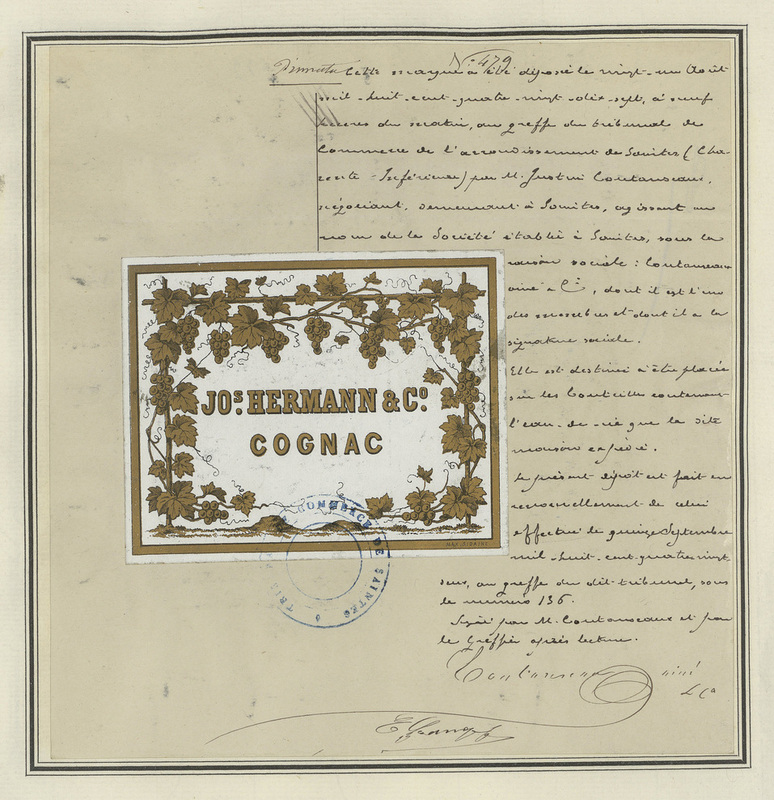 N° 479
Cette marque a été déposée le vingt-un Août
mil-huit-cent-quatre-vingt-dix-sept, à neuf
heures du matin, au greffe du tribunal de
Commerce de l'arrondissement de Saintes (Cha-
rente-Inférieure) par M. Justin Coutanseaux,
négociant, demeurant à Saintes, agissant au
nom de la Société établie à Saintes, sous la
raison sociale : Coutanseaux
ainé & Cie, dont il est l'un
des membres et dont il a la
signature sociale.
Elle est destinée à être placée
sur les bouteilles contenant
l'eau-de-vie que la dite
maison expédie.
Le présent dépôt est fait en
renouvellement de celui
effectué le quinze Septembre
mil-huit-cent-quatre-vingt-
deux, au greffe du dit tribunal, sous
le numéro 136.
Signé par M. Coutanseaux et par
le Greffier après lecture.
Coutanseaux ainé
& Co
JOS. HERMANN & CO.
COGNAC
COMMERCE DE SAINTES